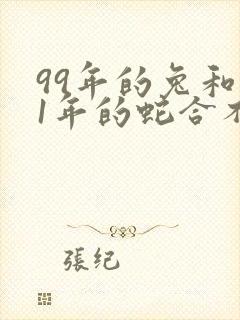 99年的兔和
1年的蛇合
張纪